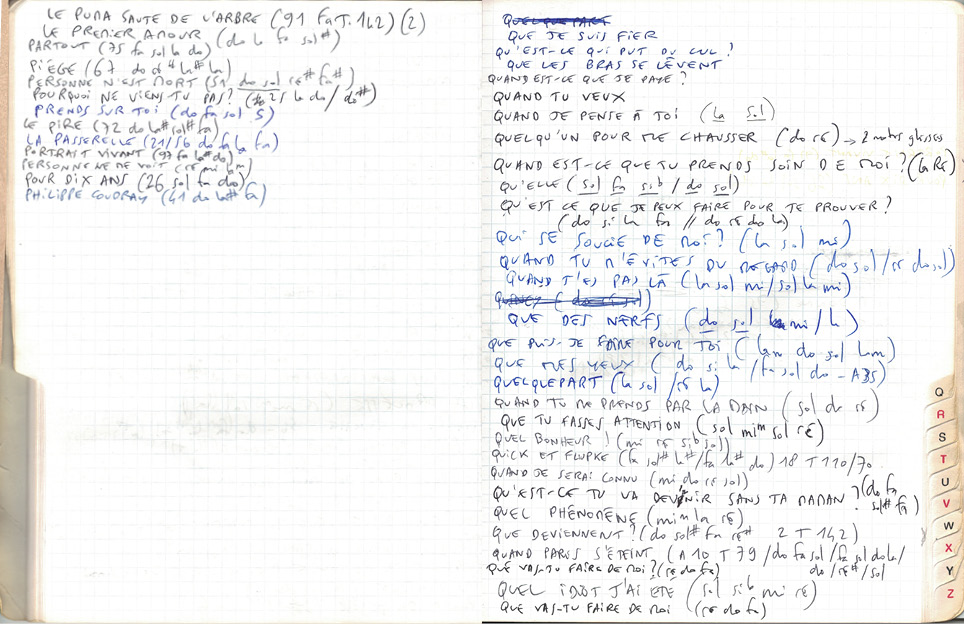 LE PUMA SAUTE DE L'ARBRE (91 Fa T. 142) (2)
LE PREMIER AMOUR (do la fa sol#)
PARTOUT (75 fa sol la do)
PIÈGE (67 do la#)
PERSONNE N'EST MORT (51 do sol re# fa#)
POURQUOI NE VIENS-TU PAS? (la do/do#)
PRENDS SUR TOI (do fa sol 5)
LE PIRE (72 do la# sol# fa)
LA PASSERELLE (21/56 do la fa)
PORTRAIT VIVANT (97 fa la# do)
PERSONNE NE ME VOIT (ré mi m)
POUR DIX ANS (26 sol fa do)
PHILIPPE COUDRAY (41 do la# fa)
QUELQUE PART
QUE JE SUIS FIER
QU'EST-CE QUI PUT DU CUL?
QUE LES BRAS SE LÈVENT
QUAND EST-CE QUE JE PAYE?
QUAND TU VEUX
QUAND JE PENSE À TOI (la sol)
QUELQU'UN POUR ME CHAUSSER (do ré) → 2 notes
QUAND EST-CE QUE TU PRENDS SOIN DE MOI? (la Ré)
QU'ELLE (sol fa sib / do sol)
QU'EST CE QUE JE PEUX FAIRE POUR TE PROUVER?
(do si la fa // do ré do la)
QUI SE SOUCIE DE MOI? (la sol mi)
QUAND TU M'ÉVITES DU REGARD (do sol/ré do sol)
QUAND T'ES PAS LÀ (la sol mi/sol la mi)
QUE DES NERFS (do sol mi/la)
QUE PUIS-JE FAIRE POUR TOI (lam do sol lam)
QUE MES YEUX (do si la/fa sol do - ABS)
QUELQUEPART (la sol/ré la)
QUAND TU ME PRENDS PAR LA MAIN (sol do ré)
QUE TU FASSES ATTENTION (sol mim sol ré)
QUEL BONHEUR! (mi ré sib sol)
QUICK ET FLUPKE (fa sol# la#/fa la# do) 18 T 110/70
QUAND JE SERAI CONNU (mi do ré sol)
QU'EST-CE TU VA DEVENIR SANS TA MAMAN? (do fa
sol# fa)
QUEL PHÉNOMÈNE (mim la ré)
QUE DEVIENNENT? (do sol# fa ré# 2 T 142)
QUAND PARIS S'ÉTEINT (A 10 T 79/do fa sol/fa sol do la/
do/ré#/sol
QUE VAS-TU FAIRE DE MOI? (ré do fa)
QUEL IDIOT J'AI ÉTÉ (sol sib mi ré)
QUE VAS-TU FAIRE DE MOI (ré do fa)
Q
R
S
T
U
V
W
X
Y
Z